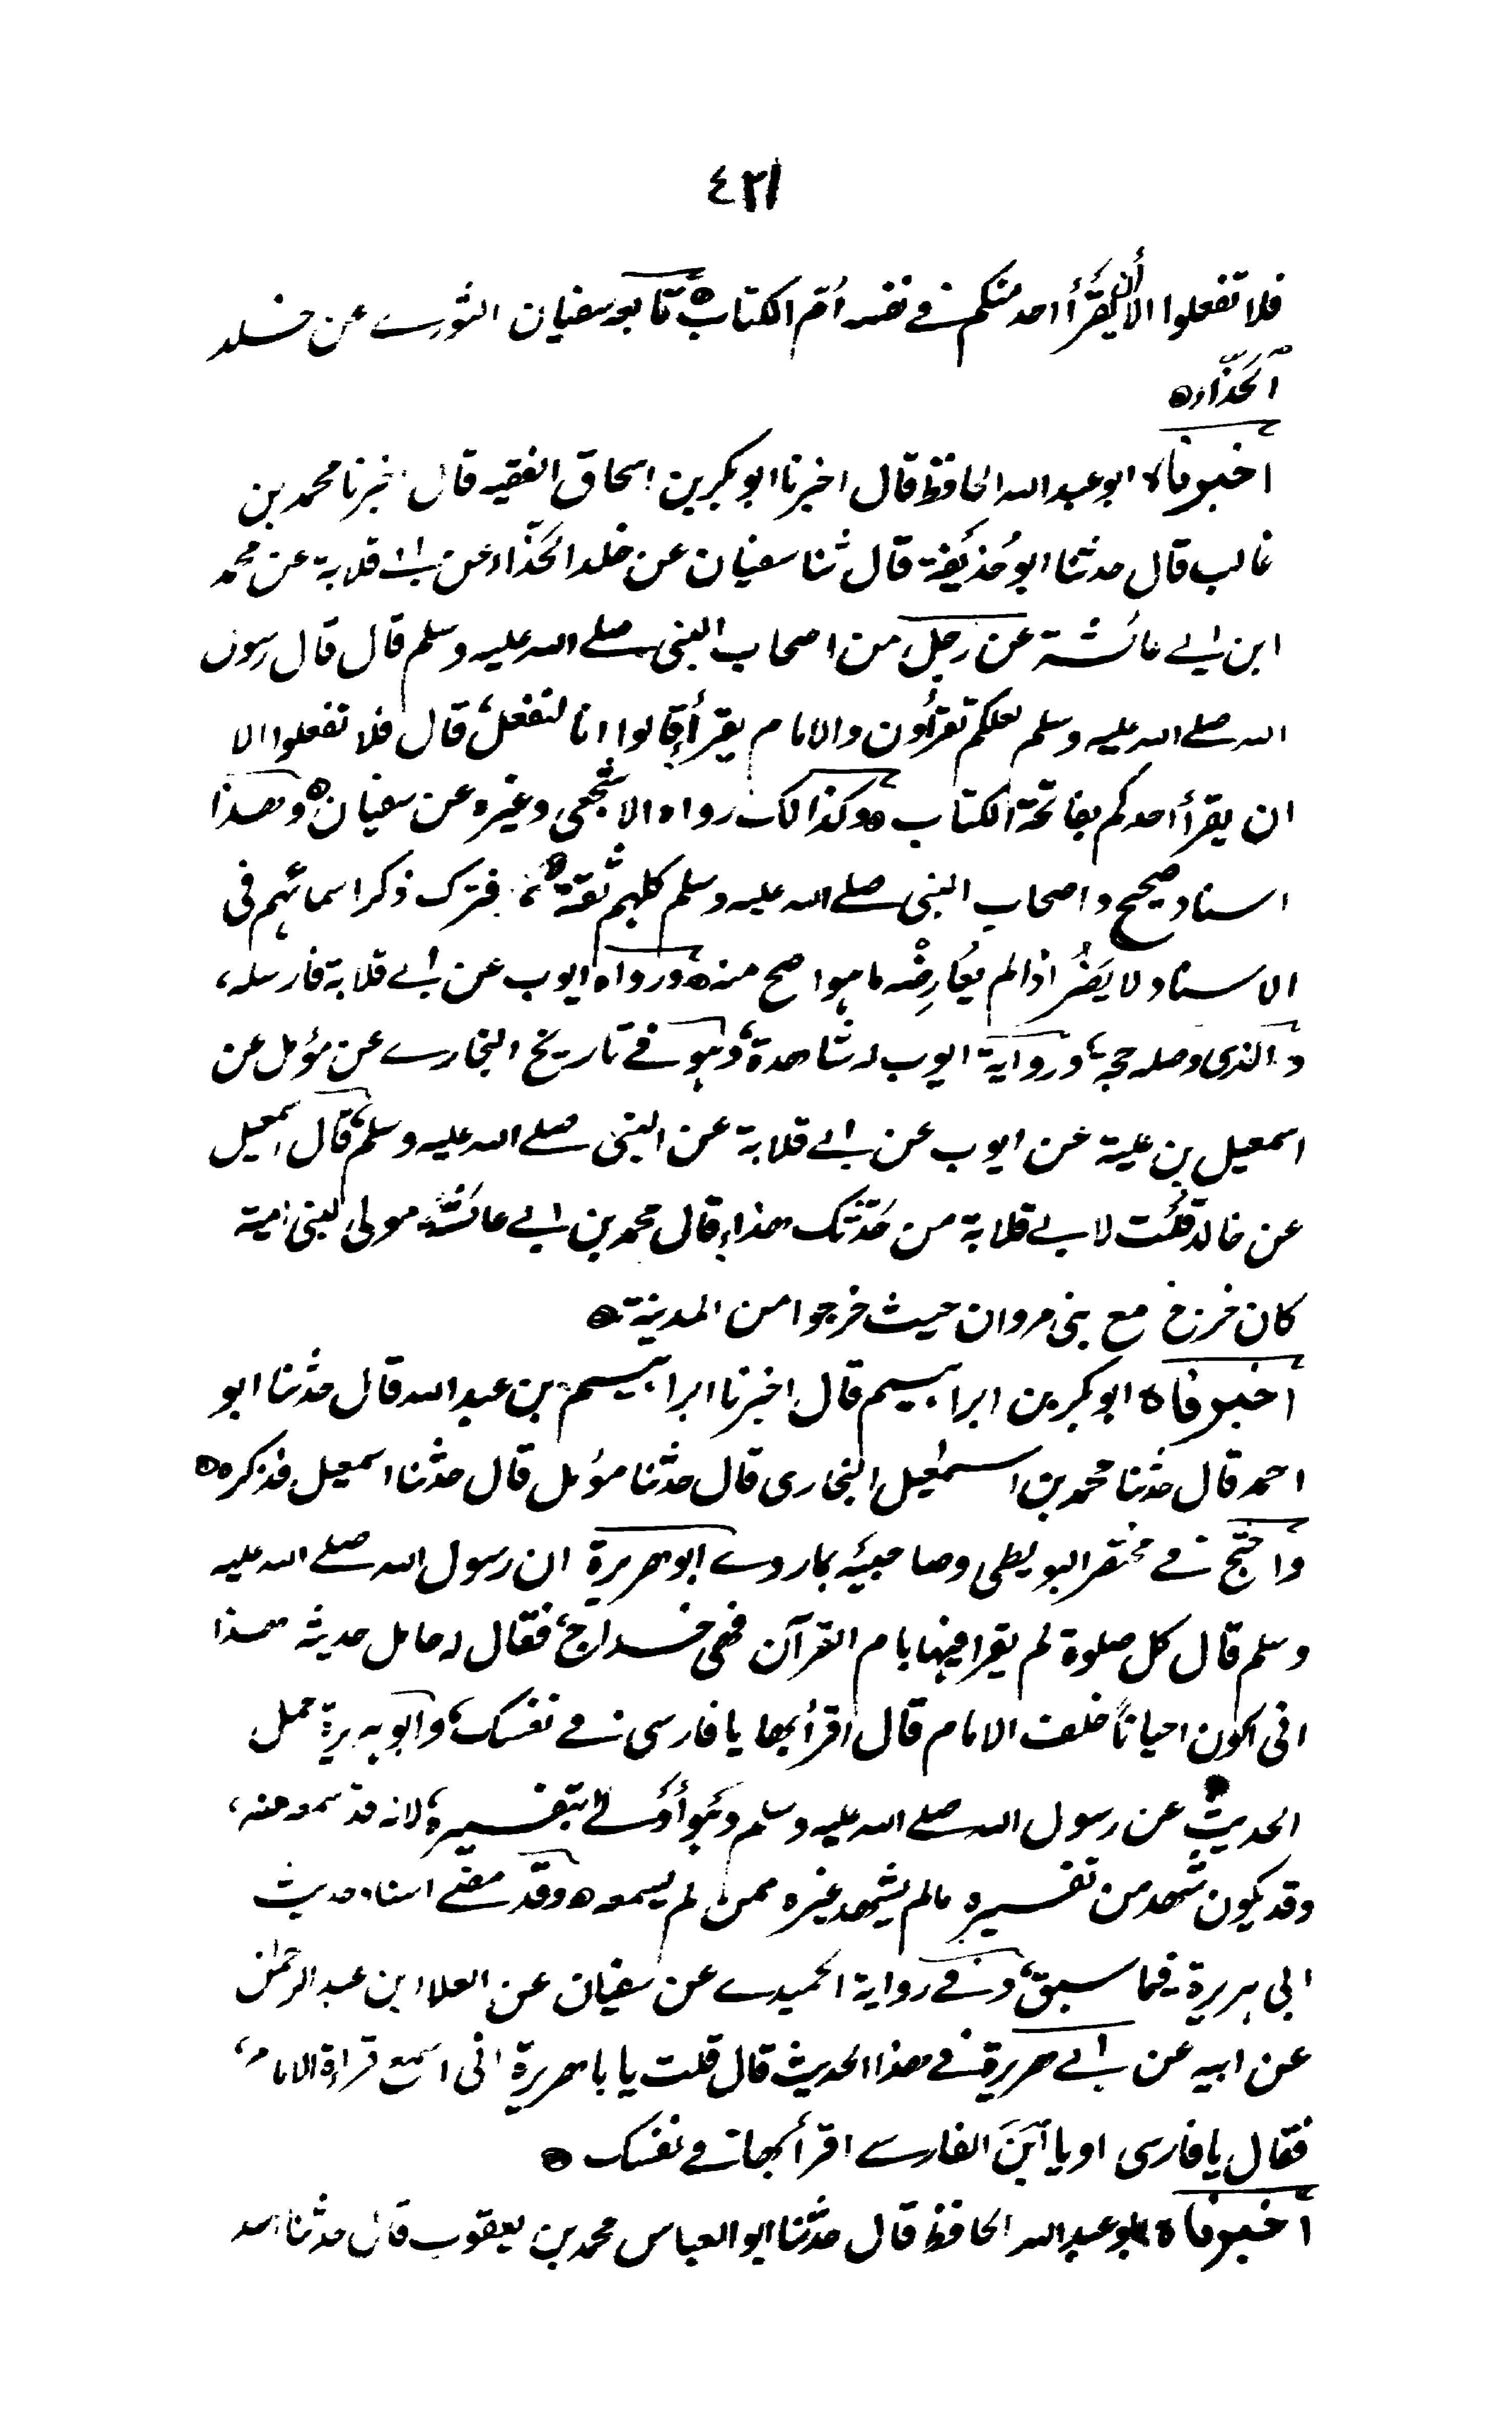 ٤٢١
فلا تفعلوا الا أن يقرأ احد منكم في نفسه اُم الكتاب ه تابعه سفيان الثوري عن خلد
الحَذّاء ه
اخبرناه ابو عبد الله الحافظ قال اخبرنا ابو بكر بن اسحاق الفقيه قال اخبرنا محمد بن
غالب قال حدثنا ابو حُذَيفة قال ثنا سفيان عن خلد الحَذّاء عن ابي قلابة عن محمد
ابن ابي عائشة عن رجل من اصحاب النبي صلى الله عليه وسلم قال قال رسول
الله صلى الله عليه وسلم لعلكم تقرأون والامام يقرأ، قالوا انا لنفعل، قال فلا تفعلوا الا
ان يقرأ احدكم بفاتحة الكتاب ه وكذالك رواه الاشجعي وغيره عن سفيان ه وهذا
اسناد صحيح واصحاب النبي صلى الله عليه وسلم كلهم ثقة ه، فترك ذكر اسمائهم في
الاسناد لا يَضُر اذا لم يعُارِضْه ما هو اصح منه ه ورواه ايوب عن ابي قلابة فارسله،
والذي وصله حجة، ورواية ايوب له شاهدة، وهو في تاريخ البخاري عن مؤمل عن
اسمعيل بن علية عن ايوب عن ابي قلابة عن النبي صلى الله عليه وسلم، قال اسمعيل
عن خالد قلُت لابي قلابة من حَدّثك هذا، قال محمد بن ابي عائشة مولى لبني امية
كان خرج مع بني مروان حيث خرجوا من المدينة ه
اخبرناه ابو بكر بن ابراهيم قال اخبرنا ابراهيم بن عبد الله قال حدثنا ابو
احمد قال حدثنا محمد بن اسمٰعيل البخاري قال حدثنا مؤمل قال حدثنا اسمعيل فذكره ه
واحتج في مختصر البويطي وصاحبيَه بما روى ابو هريرة ان رسول الله صلى الله عليه
وسلم قال كل صلوة لم يقرا فيها بام القرآن فهي خداج، فقال له حامل حديثه هذا
اني اكون احياناً خلف الامام قال اقرأ بها يا فارسي في نفسك، وابو هريرة حمل
الحديث عن رسول الله صلى الله عليه وسلم وهُو أَولى بتفسيره، لانه قد سمعه منه،
وقد يكون شهد من تفسيره مالم يشهد غيره ممن لم يسمعه ه وقد مضى اسناد حديث
ابي هريرة فيما سبق، وفي رواية الحميدي عن سفيان عن العلا ابن عبد الرحمٰن
عن ابيه عن ابي هريرة في هذا الحديث قال قلت يا با هريرة اني اسمع قراءة الامام،
فقال يا فارسي او يا ابْنَ الفارسي اقرأ بها في نفسك ه
اخبرناه ابو عبد الله الحافظ قال حدثنا ابو العباس محمد بن يعقوب قال حدثنا احمد